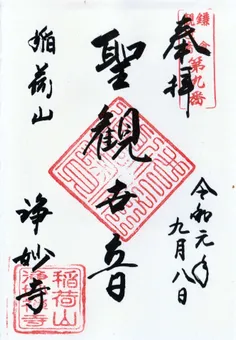 奉拝
鎌倉
観音
第九番
聖観世音
稲荷山
浄妙寺
令和元年
九月八日
稲荷山
浄妙禅寺